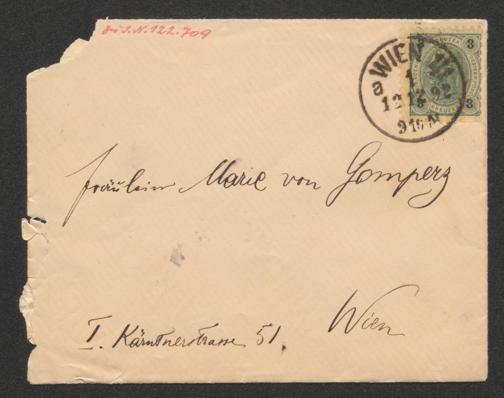 I.N.122.709
WIEN
a
1
12 12 92
3 3
Fräulein Marie von Gomperz
Wien
I. Kärntnerstrasse 51.